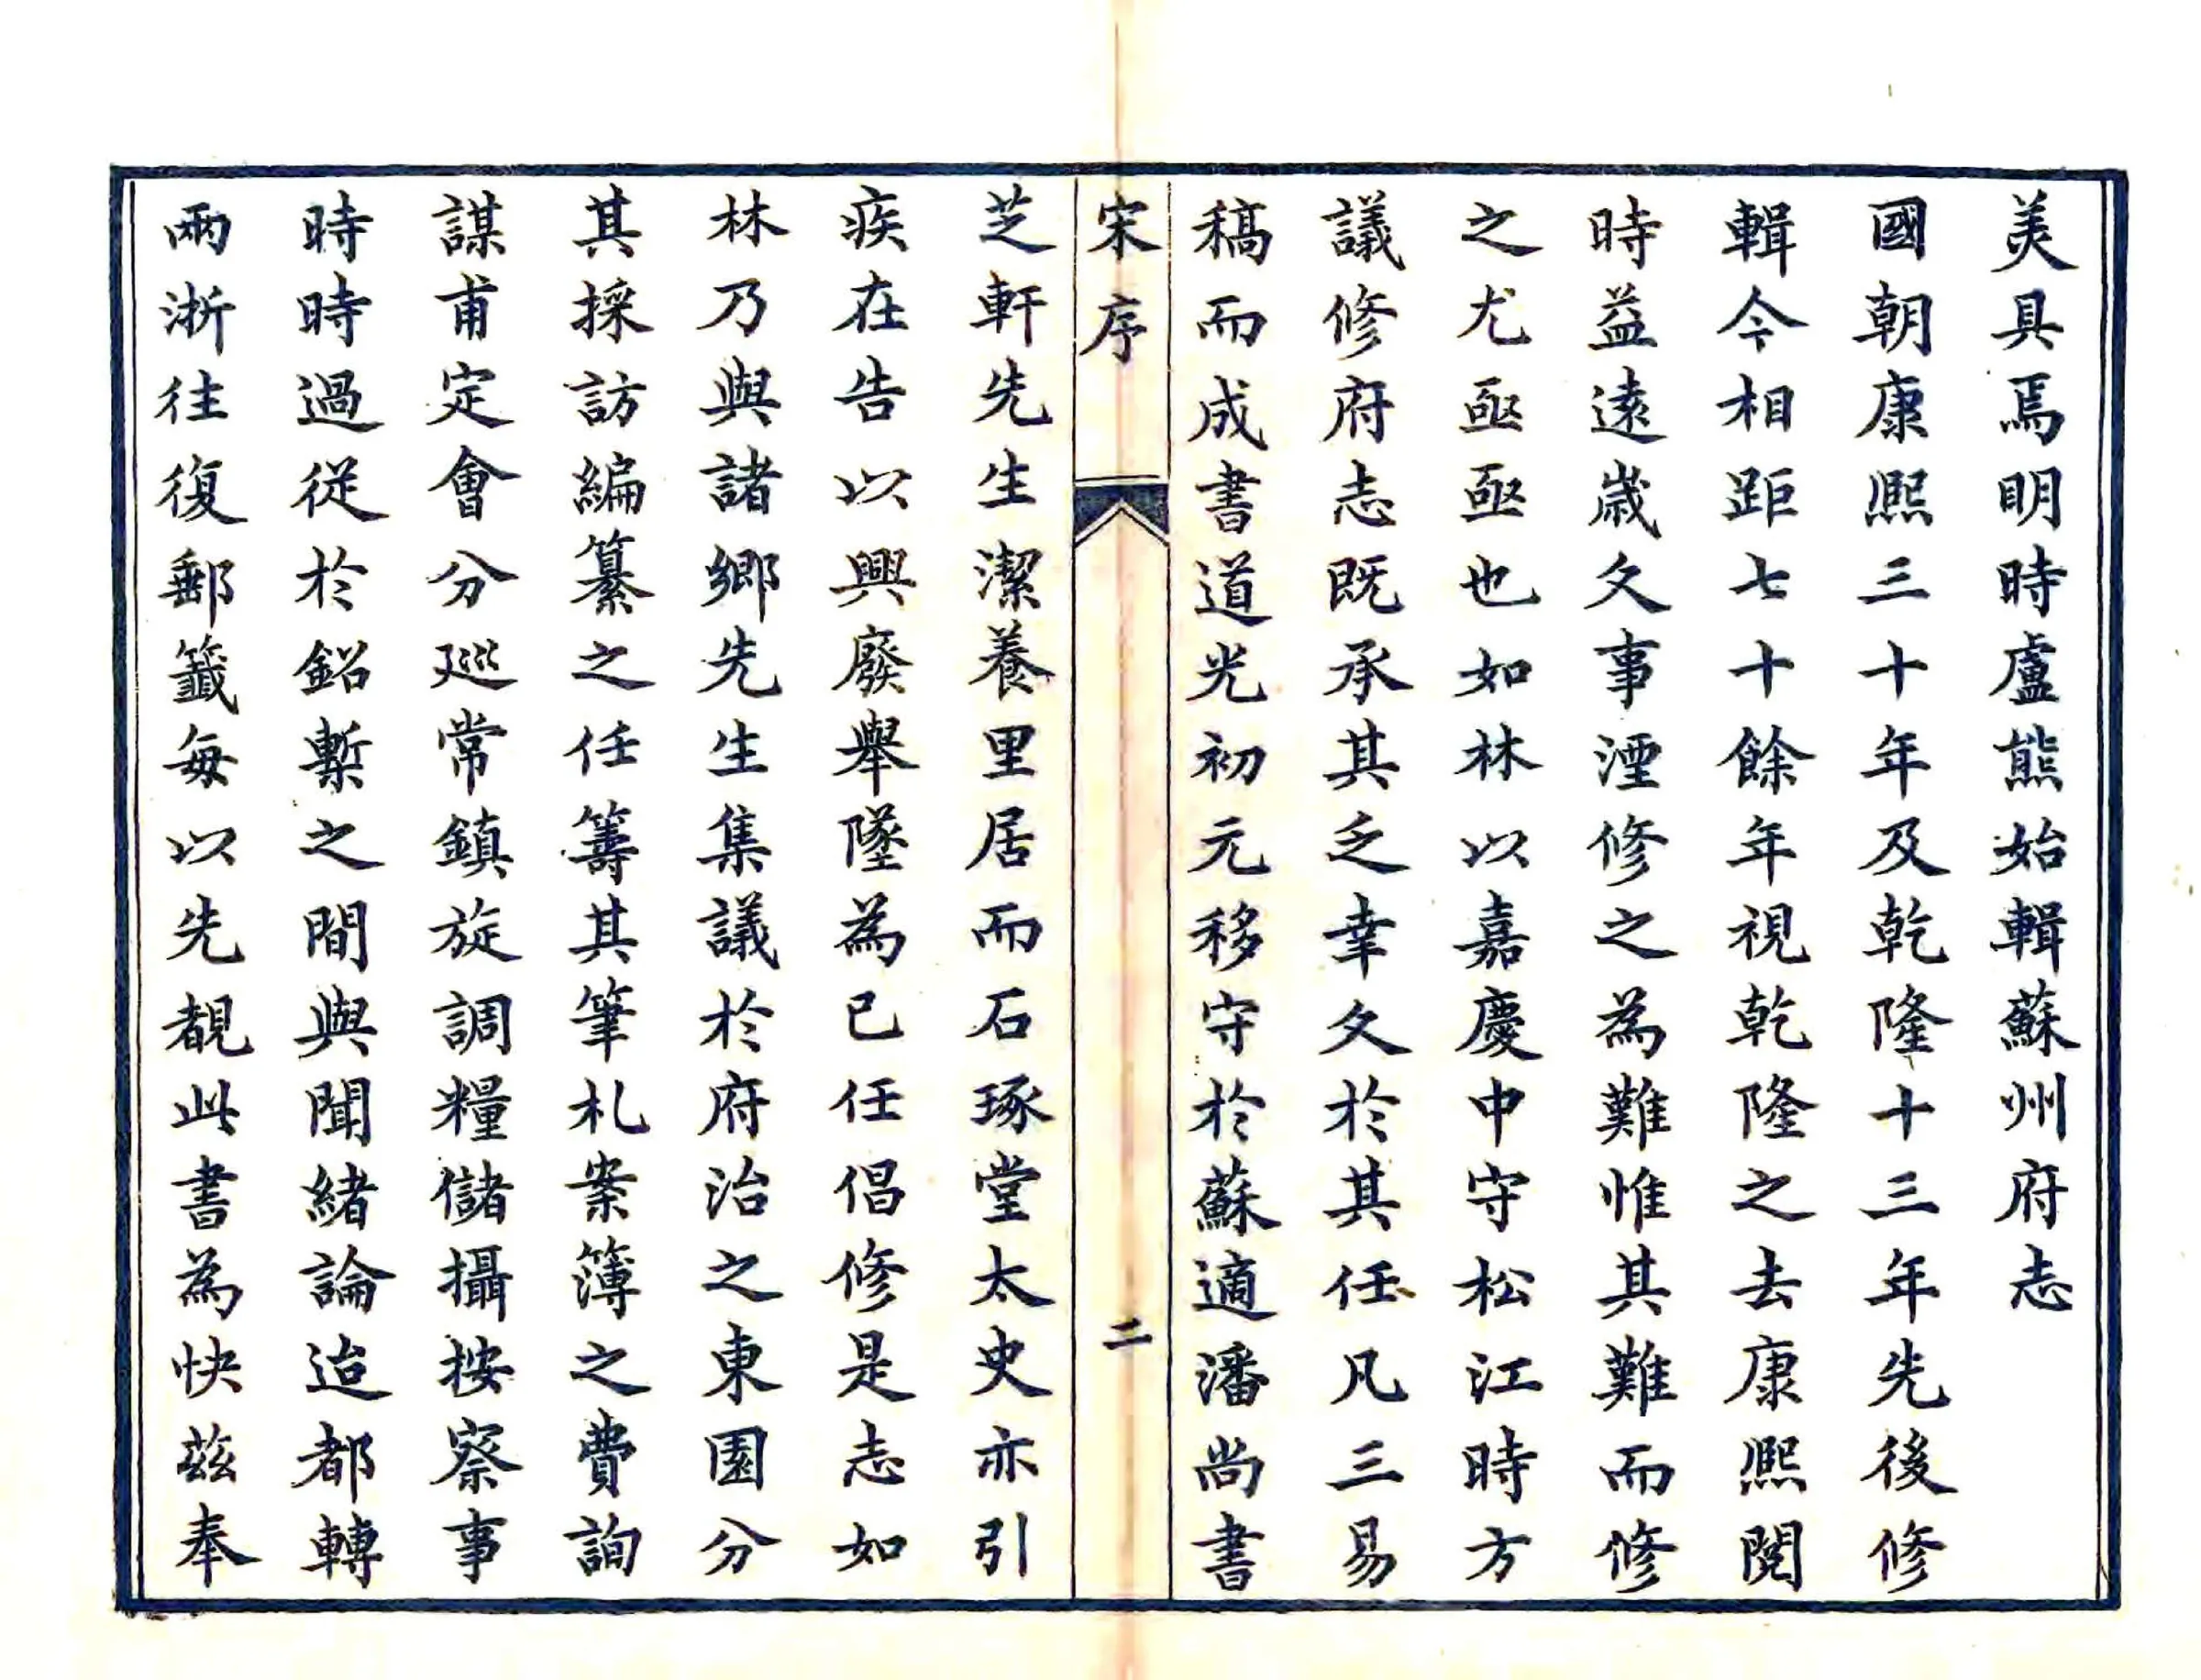 美具焉明時盧熊始輯蘇州府志
國朝康熙三十年及乾隆十三年先後修
輯今相距七十餘年視乾隆之去康熙閱
時益遠歲久事湮修之為難惟其難而修
之尤亟亟也如林以嘉慶中守松江時方
議修府志既承其乏幸久於其任凡三易
稿而成書道光初元移守於蘇適潘尚書
宋序
二
芝軒先生潔養里居而石琢堂太史亦引
疾在告以興廢舉墜為已任倡修是志如
林乃與諸鄉先生集議於府治之東園分
其採訪編纂之任籌其筆札案簿之費詢
謀甫定會分巡常鎮旋調糧儲攝按察事
時時過從於鉛槧之間與聞緒論迨都轉
兩浙往復郵籤每以先覩此書為快茲奉